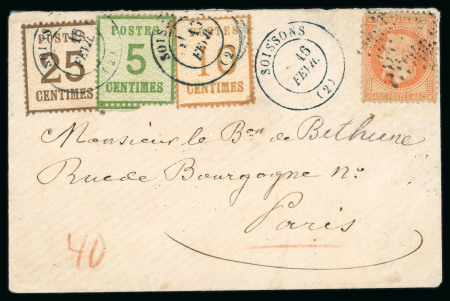 POSTES
25
CENTIMES
POSTES
5
CENTIMES
10
CENTIMES
SOISSONS
15
FEVR.
(2)
Monsieur le Bon de Bethune
Rue de Bourgogne No.
Paris
40